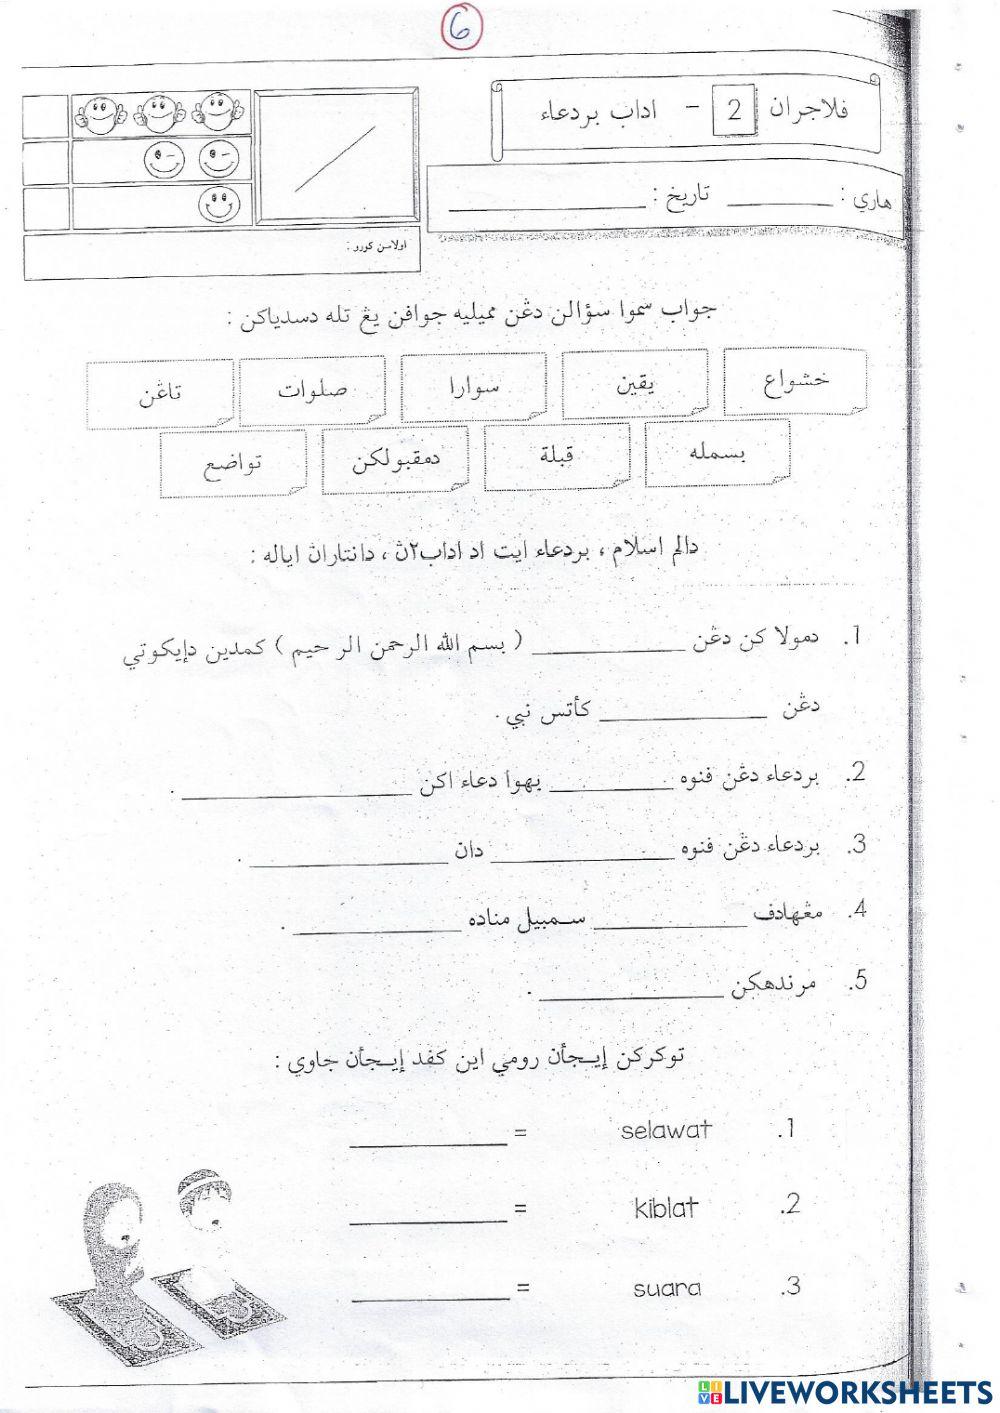 6
فلاجران 2 - اداب بردعاء
هاري : ________ تاريخ : ________
اولاسن كورو :
جواب سموا سؤالن دڠن مميليه جوافن يڠ تله دسدياكن :
خشواع يقين سوارا صلوات تاڠن
بسمله قبلة دمقبولكن تواضع
دالم اسلام ، بردعاء ايت اد اداب٢ڽ ، دانتاراڽ اياله :
1. دمولا كن دڠن ________ ( بسم الله الرحمن الر حيم ) كمدين دإيكوتي
دڠن ________ كأتس نبي .
2. بردعاء دڠن فنوه ________ بهوا دعاء اكن ________ .
3. بردعاء دڠن فنوه ________ دان ________ .
4. مڠهادف ________ سمبيل مناده ________ .
5. مرندهكن ________ .
توكركن إيجأن رومي اين كفد إيجأن جاوي :
1. selawat = ________
2. kiblat = ________
3. suara = ________
LIVEWORKSHEETS